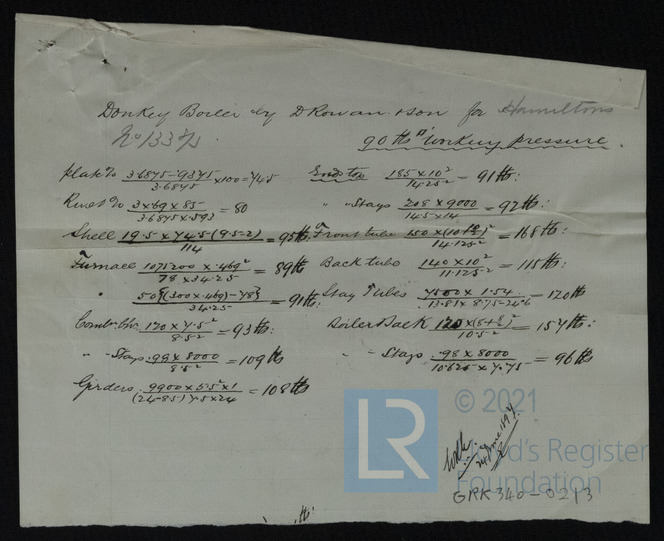 Donkey Boiler by D Rowan & Son for Hamiltons
No 133
90 lbs " Working pressure.
plate % 3.6875 - .9375 / 3.6875 x 100 = 74.5
Rivet % 3 x 69 x 85 / 3.6875 x 593 = 80
Shell 19.5 x 74.5 (9.5-2) / 114 = 95 lbs
Furnace 1075200 x .469² / 78 x 34.25 = 89 lbs
" 50{(300 x .469) - 78} / 34.25 = 91 lbs:
Comb. Chr. 120 x 7.5² / 8.5² = 93 lbs:
" " Stays .99 x 8000 / 8.5² = 109 lbs
Girders 9900 x 5.5² x 1 / (24-8.5) 7.5 x 24 = 108 lbs
End top 185 x 10² / 14.25² = 91 lbs:
" " Stays 208 x 9000 / 14.5 x 14 = 92 lbs:
Front tube 150 x / 14.125² = 168 lbs:
Back tube 140 x 10² / 11.125² = 115 lbs:
Stay Tubes 7500 x 1.54 / 13.81 x 8.75 - 24.6 = 120 lbs
Boiler Back 120 x / 10.5² = 157 lbs:
" " Stays .98 x 8000 / 10.625 x 7.75 = 96 lbs
24 June 1897
lbs:
© 2021
LR
Lloyd's Register
Foundation
GRK340-0213